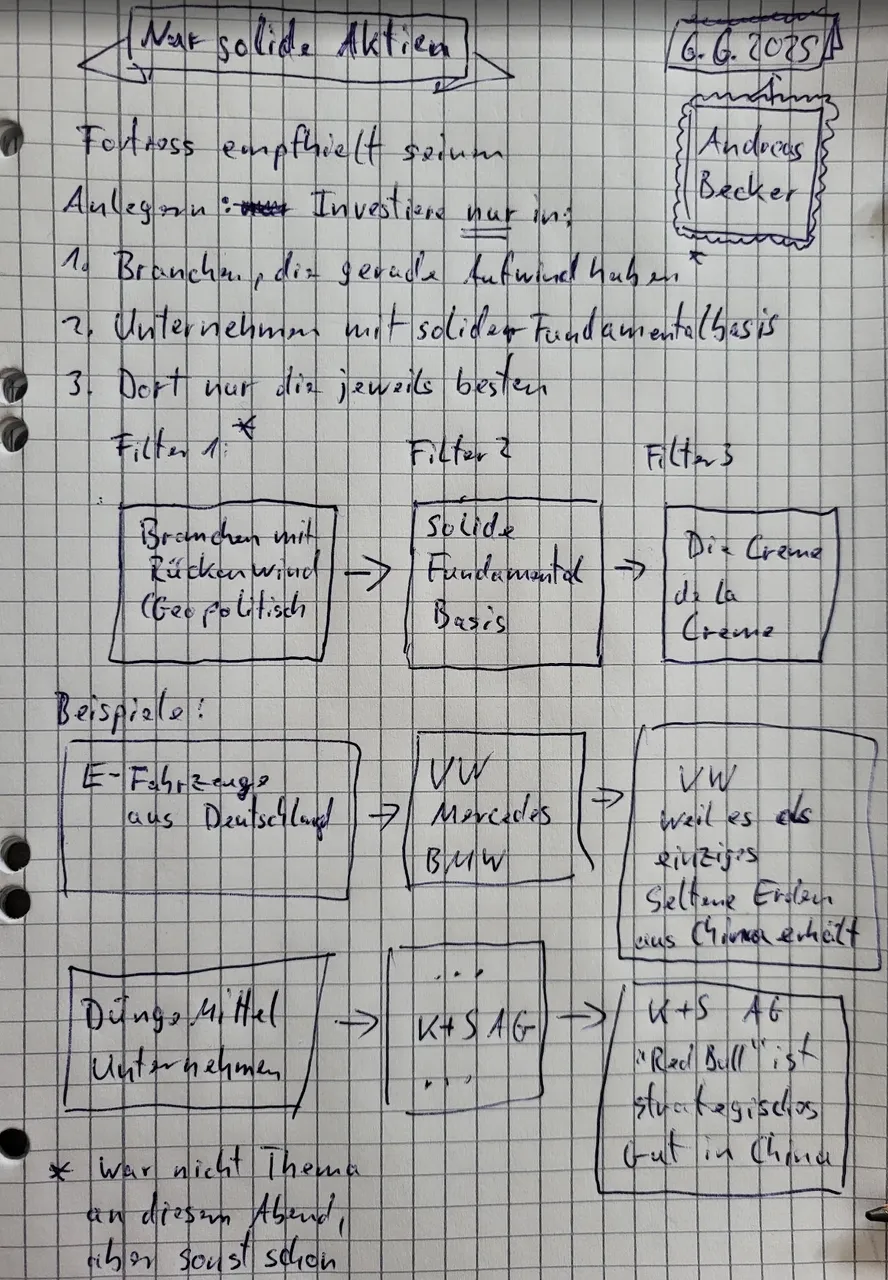 Nur solide Aktien
6.6.2025
Andreas
Becker
Fortress empfhielt seinen
Anlegern: Investiere nur in:
1. Branchen, die gerade Aufwind haben*
2. Unternehmen mit solider Fundamentalbasis
3. Dort nur die jeweils besten
Filter 1: *
Filter 2
Filter 3
Branchen mit
Rückenwind
(Geopolitisch
Solide
Fundamental
Basis
Die Creme
de la
Creme
Beispiele:
E-Fahrzeuge
aus Deutschland
VW
Mercedes
BMW
VW
weil es als
einziges
Seltene Erden
aus China erhält
Dünge Mittel
Unternehmen
...
K+S AG
...
K+S AG
"Red Bull" ist
strategisches
Gut in China
* war nicht Thema
an diesem Abend,
aber sonst schon